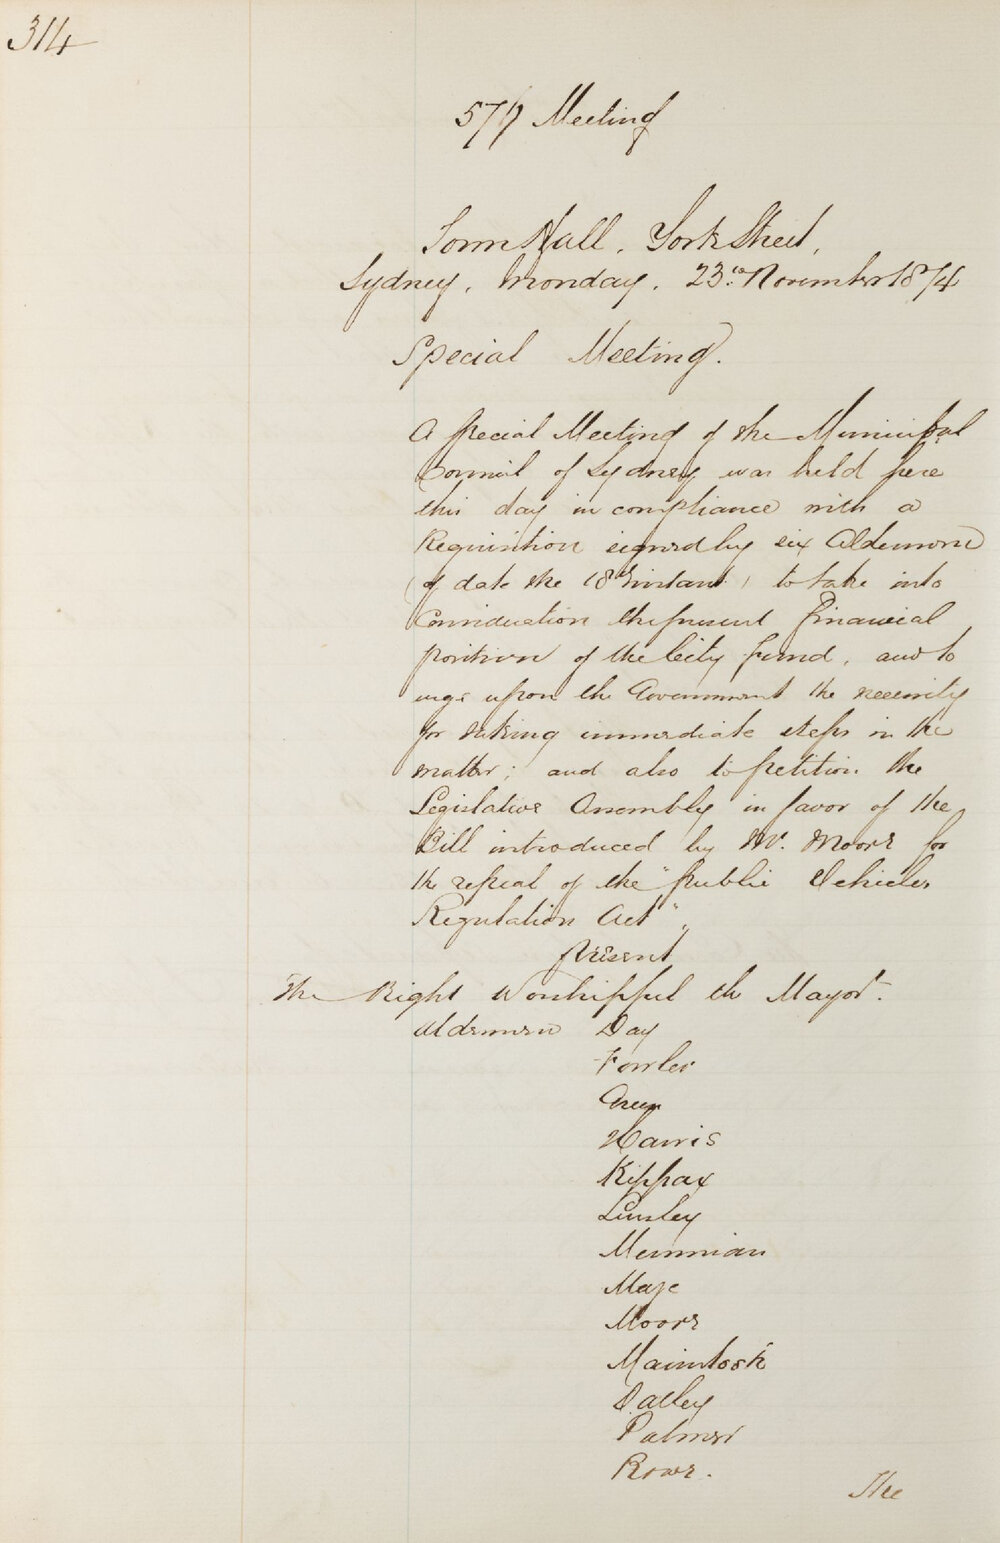 314
57th Meeting
Town Hall, York Street,
Sydney, Monday, 23rd November 1874
Special Meeting.
A special Meeting of the Municipal
Council of Sydney was held here
this day in compliance with a
Requisition signed by six Aldermen
(of date the 18th instant) to take into
Consideration the present financial
position of the City fund, and to
urge upon the Government the necessity
for taking immediate steps in the
matter; and also to petition the
Legislative Assembly in favor of the
Bill introduced by Mr. Moore for
the repeal of the "Public Vehicles
Regulation Act",
Present
The Right Worshipful the Mayor.
Aldermen Day
Fowler
Green
Harris
Kippax
Linsley
Merriman
Maze
Moore
Macintosh
Dalley
Palmer
Rowe.
The